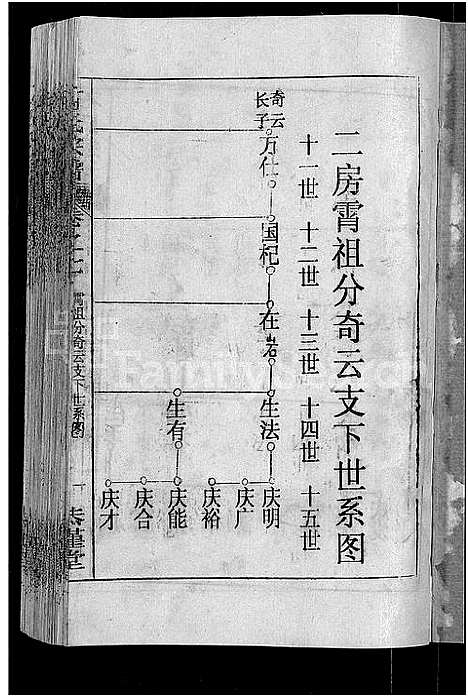 二房霄祖分奇云支下世系图
十一世 十二世 十三世 十四世 十五世
奇云
长子
万仕
国杞
在岩
生法
生有
庆明
庆广
庆裕
庆能
庆合
庆才
霄祖分奇云支下世系图
一